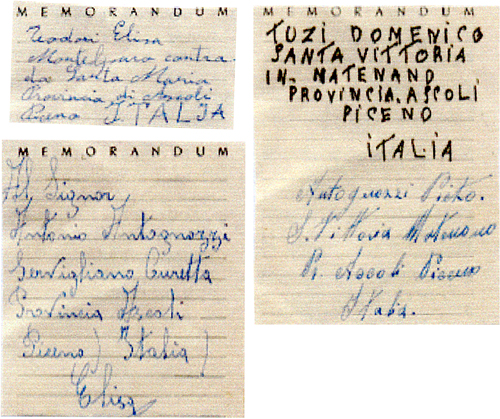 MEMORANDUM
Teodori Elisa
Montelparo contra-
da Santa Maria
Provincia di Ascoli
Piceno ITALIA
MEMORANDUM
Al Signor
Antonio Antognozzi
Servigliano Curetta
Provincia Ascoli
Piceno) Italia)
Elisa
MEMORANDUM
TUZI DOMENICO
SANTA VITTORIA
IN. MATENANO
PROVINCIA. ASCOLI
PICENO
ITALIA
Antognozzi Pietro.
S. Vittoria Matenano
Pr. Ascoli Piceno
Italia.